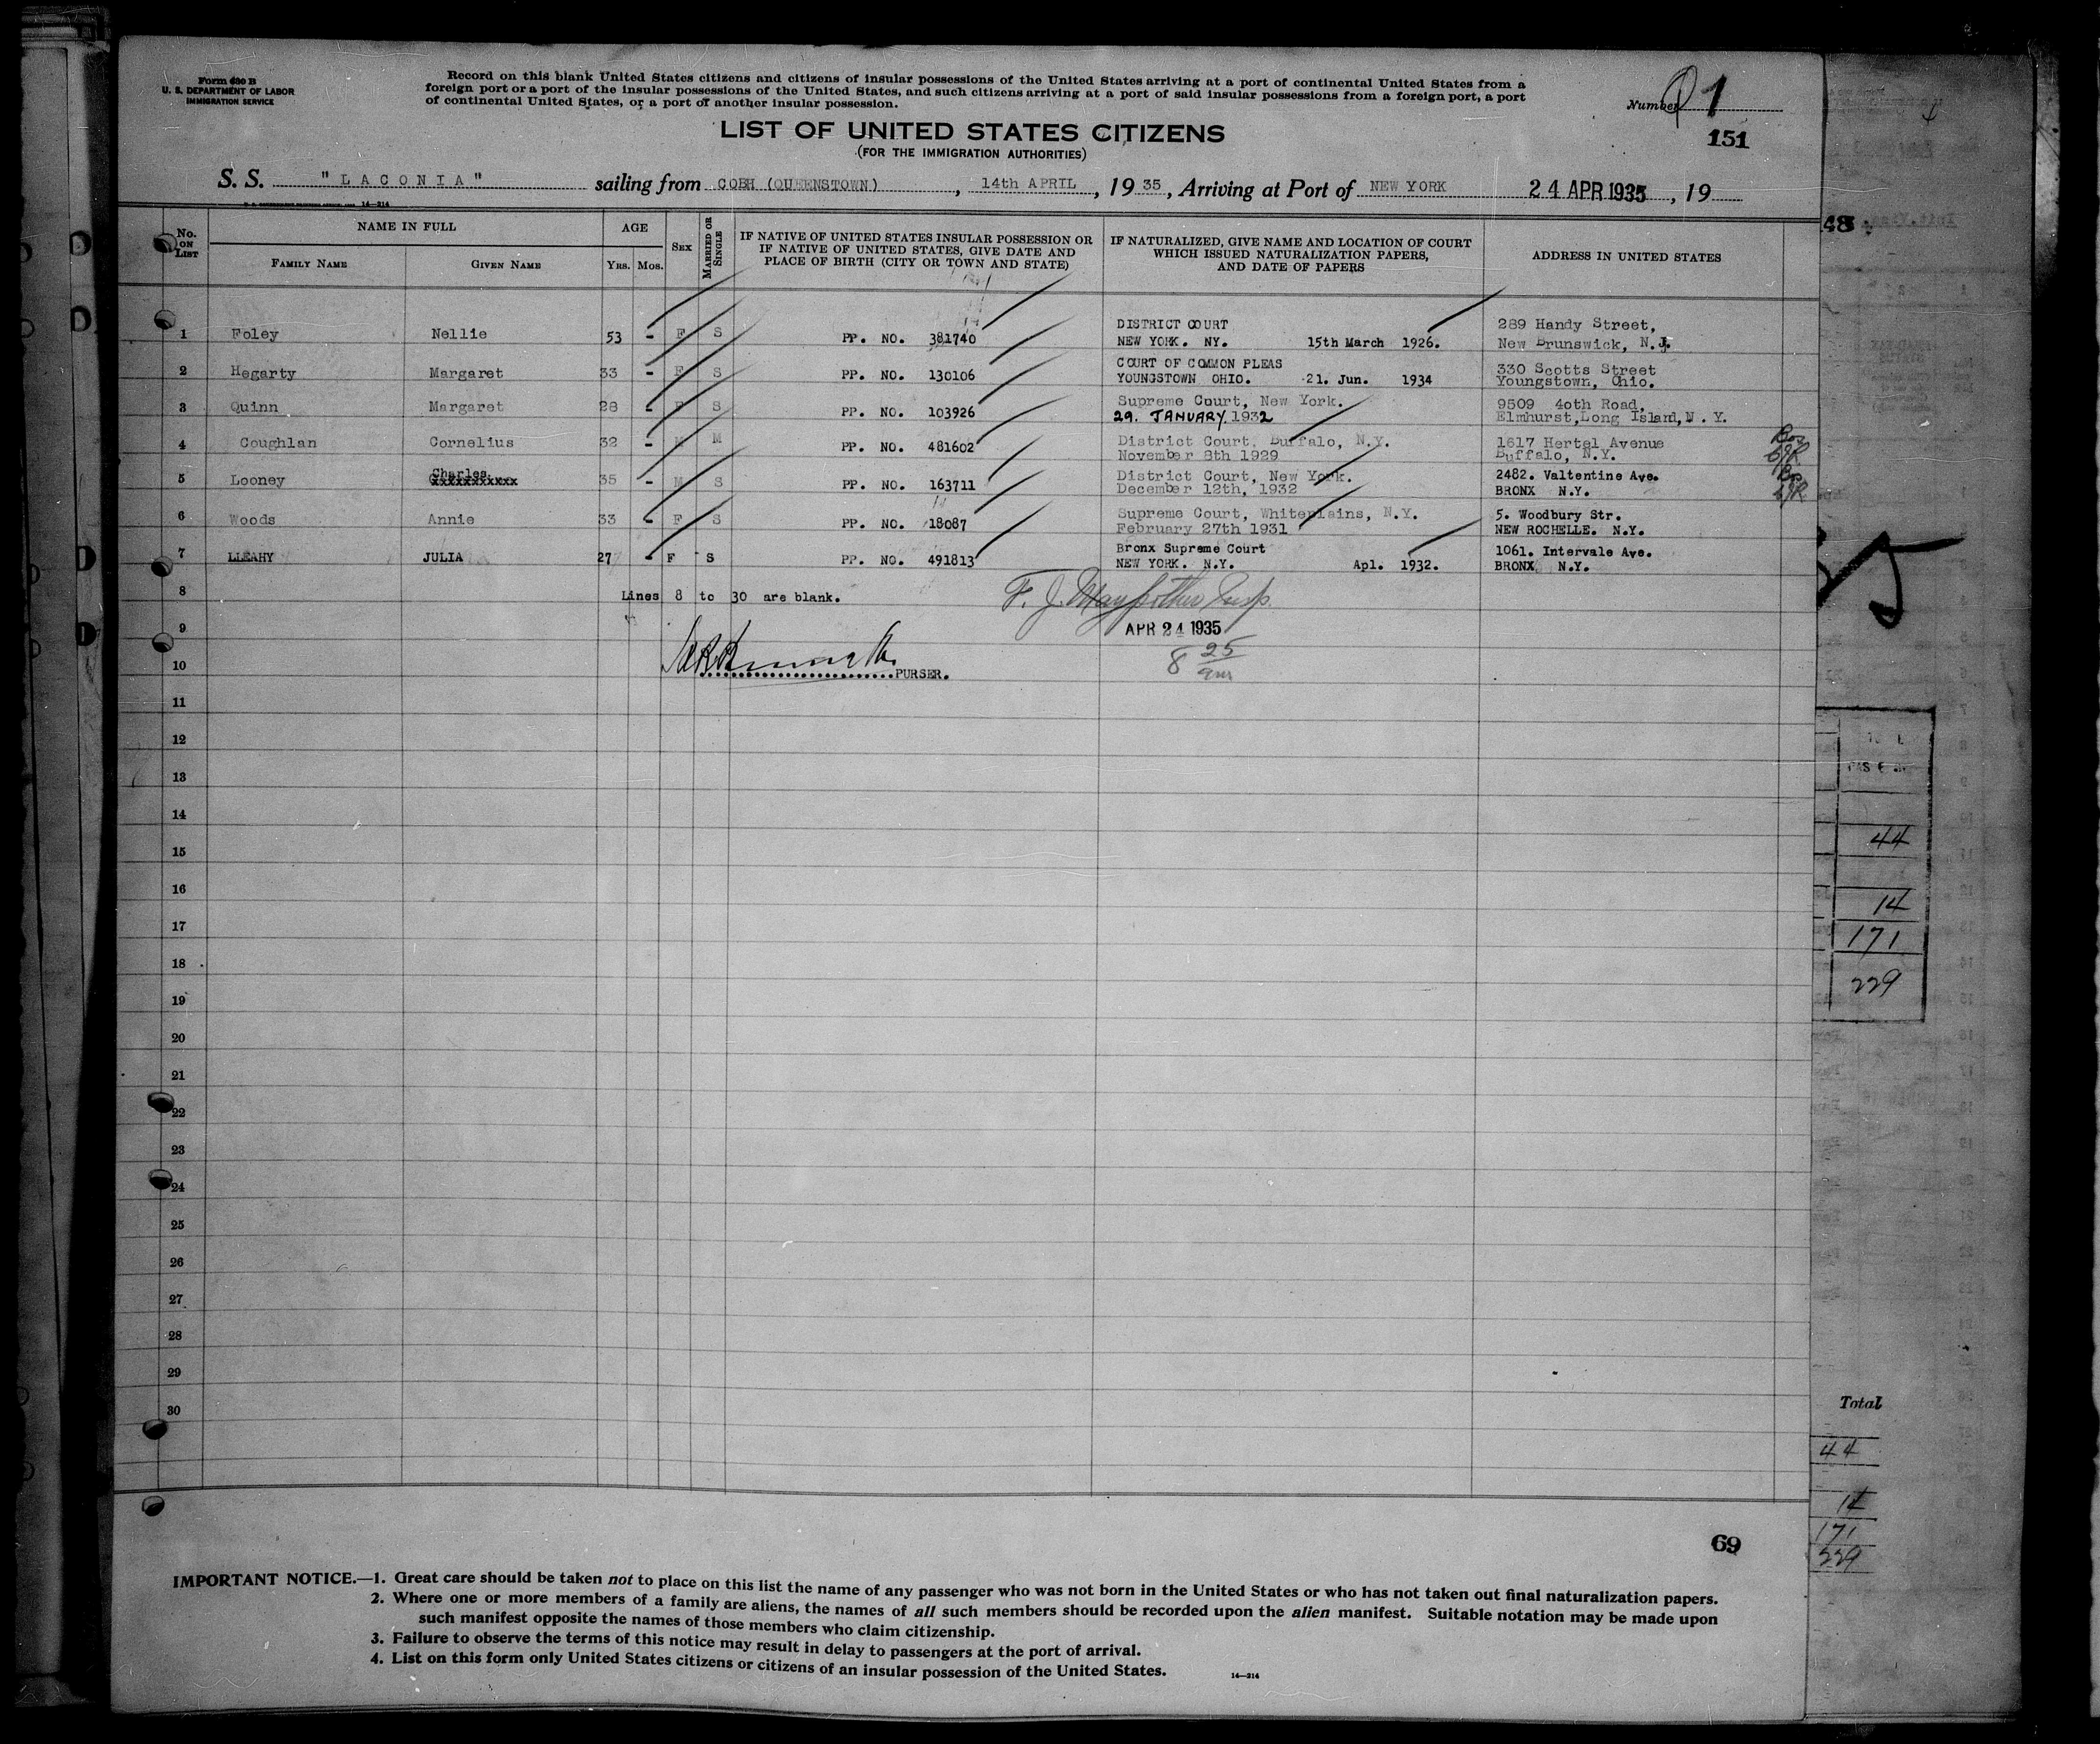 Form 630 B
U. S. DEPARTMENT OF LABOR
IMMIGRATION SERVICE
Record on this blank United States citizens and citizens of insular possessions of the United States arriving at a port of continental United States from a
foreign port or a port of the insular possessions of the United States, and such citizens arriving at a port of said insular possessions from a foreign port, a port
of continental United States, or a port of another insular possession.
Number 1
151
LIST OF UNITED STATES CITIZENS
(FOR THE IMMIGRATION AUTHORITIES)
S. S. "LACONIA" sailing from COBH (QUEENSTOWN), 14th APRIL, 1935, Arriving at Port of NEW YORK 24 APR 1935, 19
14—214
No. ON LIST NAME IN FULL AGE SEX MARRIED OR SINGLE IF NATIVE OF UNITED STATES INSULAR POSSESSION OR IF NATIVE OF UNITED STATES, GIVE DATE AND PLACE OF BIRTH (CITY OR TOWN AND STATE) IF NATURALIZED, GIVE NAME AND LOCATION OF COURT WHICH ISSUED NATURALIZATION PAPERS, AND DATE OF PAPERS ADDRESS IN UNITED STATES
FAMILY NAME GIVEN NAME YRS. MOS.
48
1 Foley Nellie 53 - F S PP. NO. 381740 DISTRICT COURT NEW YORK. NY. 15th March 1926. 289 Handy Street, New Brunswick, N.J.
2 Hegarty Margaret 33 - F S PP. NO. 130106 COURT OF COMMON PLEAS YOUNGSTOWN OHIO. 21. Jun. 1934 330 Scotts Street Youngstown, Ohio.
3 Quinn Margaret 28 - F S PP. NO. 103926 Supreme Court, New York. 29. JANUARY. 1932 9509 40th Road, Elmhurst, Long Island, N. Y.
4 Coughlan Cornelius 32 - M M PP. NO. 481602 District Court, Buffalo, N.Y. November 8th 1929 1617 Hertel Avenue Buffalo, N.Y.
5 Looney Charles xxxxxxxxxxx 35 - M S PP. NO. 163711 District Court, New York. December 12th, 1932 2482. Valtentine Ave. BRONX N.Y.
6 Woods Annie 33 - F S PP. NO. 18087 Supreme Court, Whiteplains, N.Y. February 27th 1931 5. Woodbury Str. NEW ROCHELLE. N.Y.
7 LLEAHY JULIA 27 - F S PP. NO. 491813 Bronx Supreme Court NEW YORK. N.Y. Apl. 1932. 1061. Intervale Ave. BRONX N.Y.
8 Lines 8 to 30 are blank. F. J.
9 APR 24 1935
10 PURSER. 8 25
11
12
13
14
15
16
17
18
19
20
21
22
23
24
25
26
27
28
29
30
44
14
171
229
Total
44
14
171
229
69
IMPORTANT NOTICE.—1. Great care should be taken not to place on this list the name of any passenger who was not born in the United States or who has not taken out final naturalization papers.
2. Where one or more members of a family are aliens, the names of all such members should be recorded upon the alien manifest. Suitable notation may be made upon
such manifest opposite the names of those members who claim citizenship.
3. Failure to observe the terms of this notice may result in delay to passengers at the port of arrival.
4. List on this form only United States citizens or citizens of an insular possession of the United States.
14—214